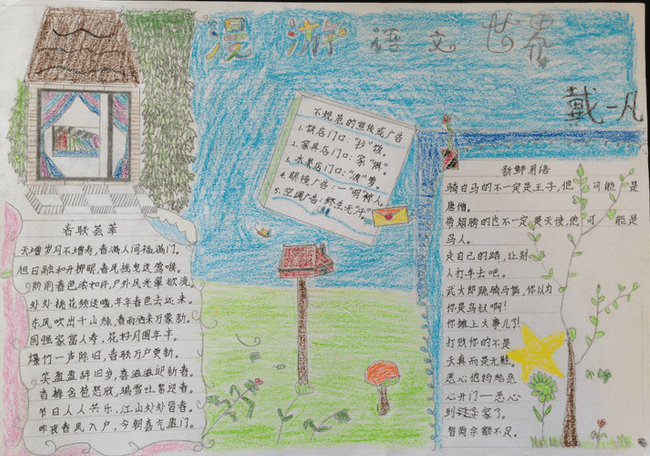 漫游语文世界
戴一凡
不规范的宣传或广告
1.饭店门口:“抄”饭。
2.家具店门口:家“俱”。
3.水果店门口:“波”萝。
4.眼镜广告:一“明”惊人。
5.空调广告:终生无“汗”
春联荟萃
天增岁月人增寿,春满人间福满门。
旭日融和开柳眼,春风摇曳送莺喉。
阶前春色浓如许,户外风光翠欲流。
处处桃花频送暖,年年春色去还来。
东风吹出千山绿,春雨洒来万象新。
国强家富人寿,花好月圆年丰。
爆竹一声除旧,春联万户更新。
笑盈盈辞旧岁,喜滋滋迎新春。
春梅含苞怒放,瑞雪吐絮迎春。
节日人人共乐,江山处处皆春。
昨夜春风入户,今朝喜气盈门。
新鲜月语
骑白马的不一定是王子,他可能是
唐僧。
带翅膀的也不一定是天使,他可能是
鸟人。
走自己的路,让别
人打车去吧。
武大郎跳骑马舞,你以为
你是鸟叔啊!
你摊上大事儿了!
打败你的不是
天真而是无鞋。
恶心他妈给恶
心开门—恶心
到家了。
智商余额不足。